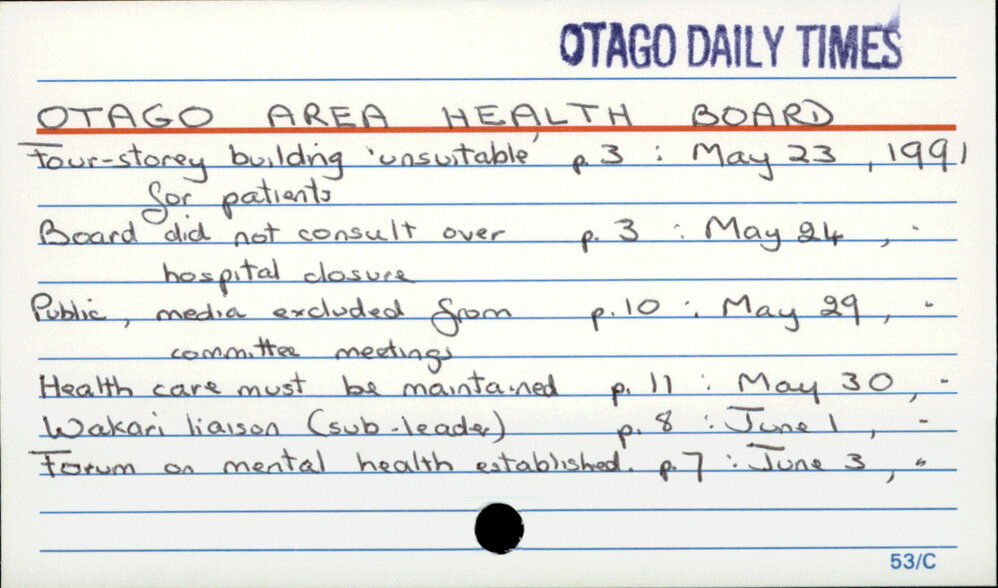 OTAGO DAILY TIMES
OTAGO AREA HEALTH BOARD
Four-storey building 'unsuitable' p.3 : May 23, 1991
for patients
Board did not consult over p. 3 : May 24, "
hospital closure
Public, media excluded from p.10 : May 29, "
committee meetings
Health care must be maintained p. 11 : May 30, "
Wakari liaison (sub-leader) p. 8 : June 1, "
Forum on mental health established. p.7 : June 3, "
53/C